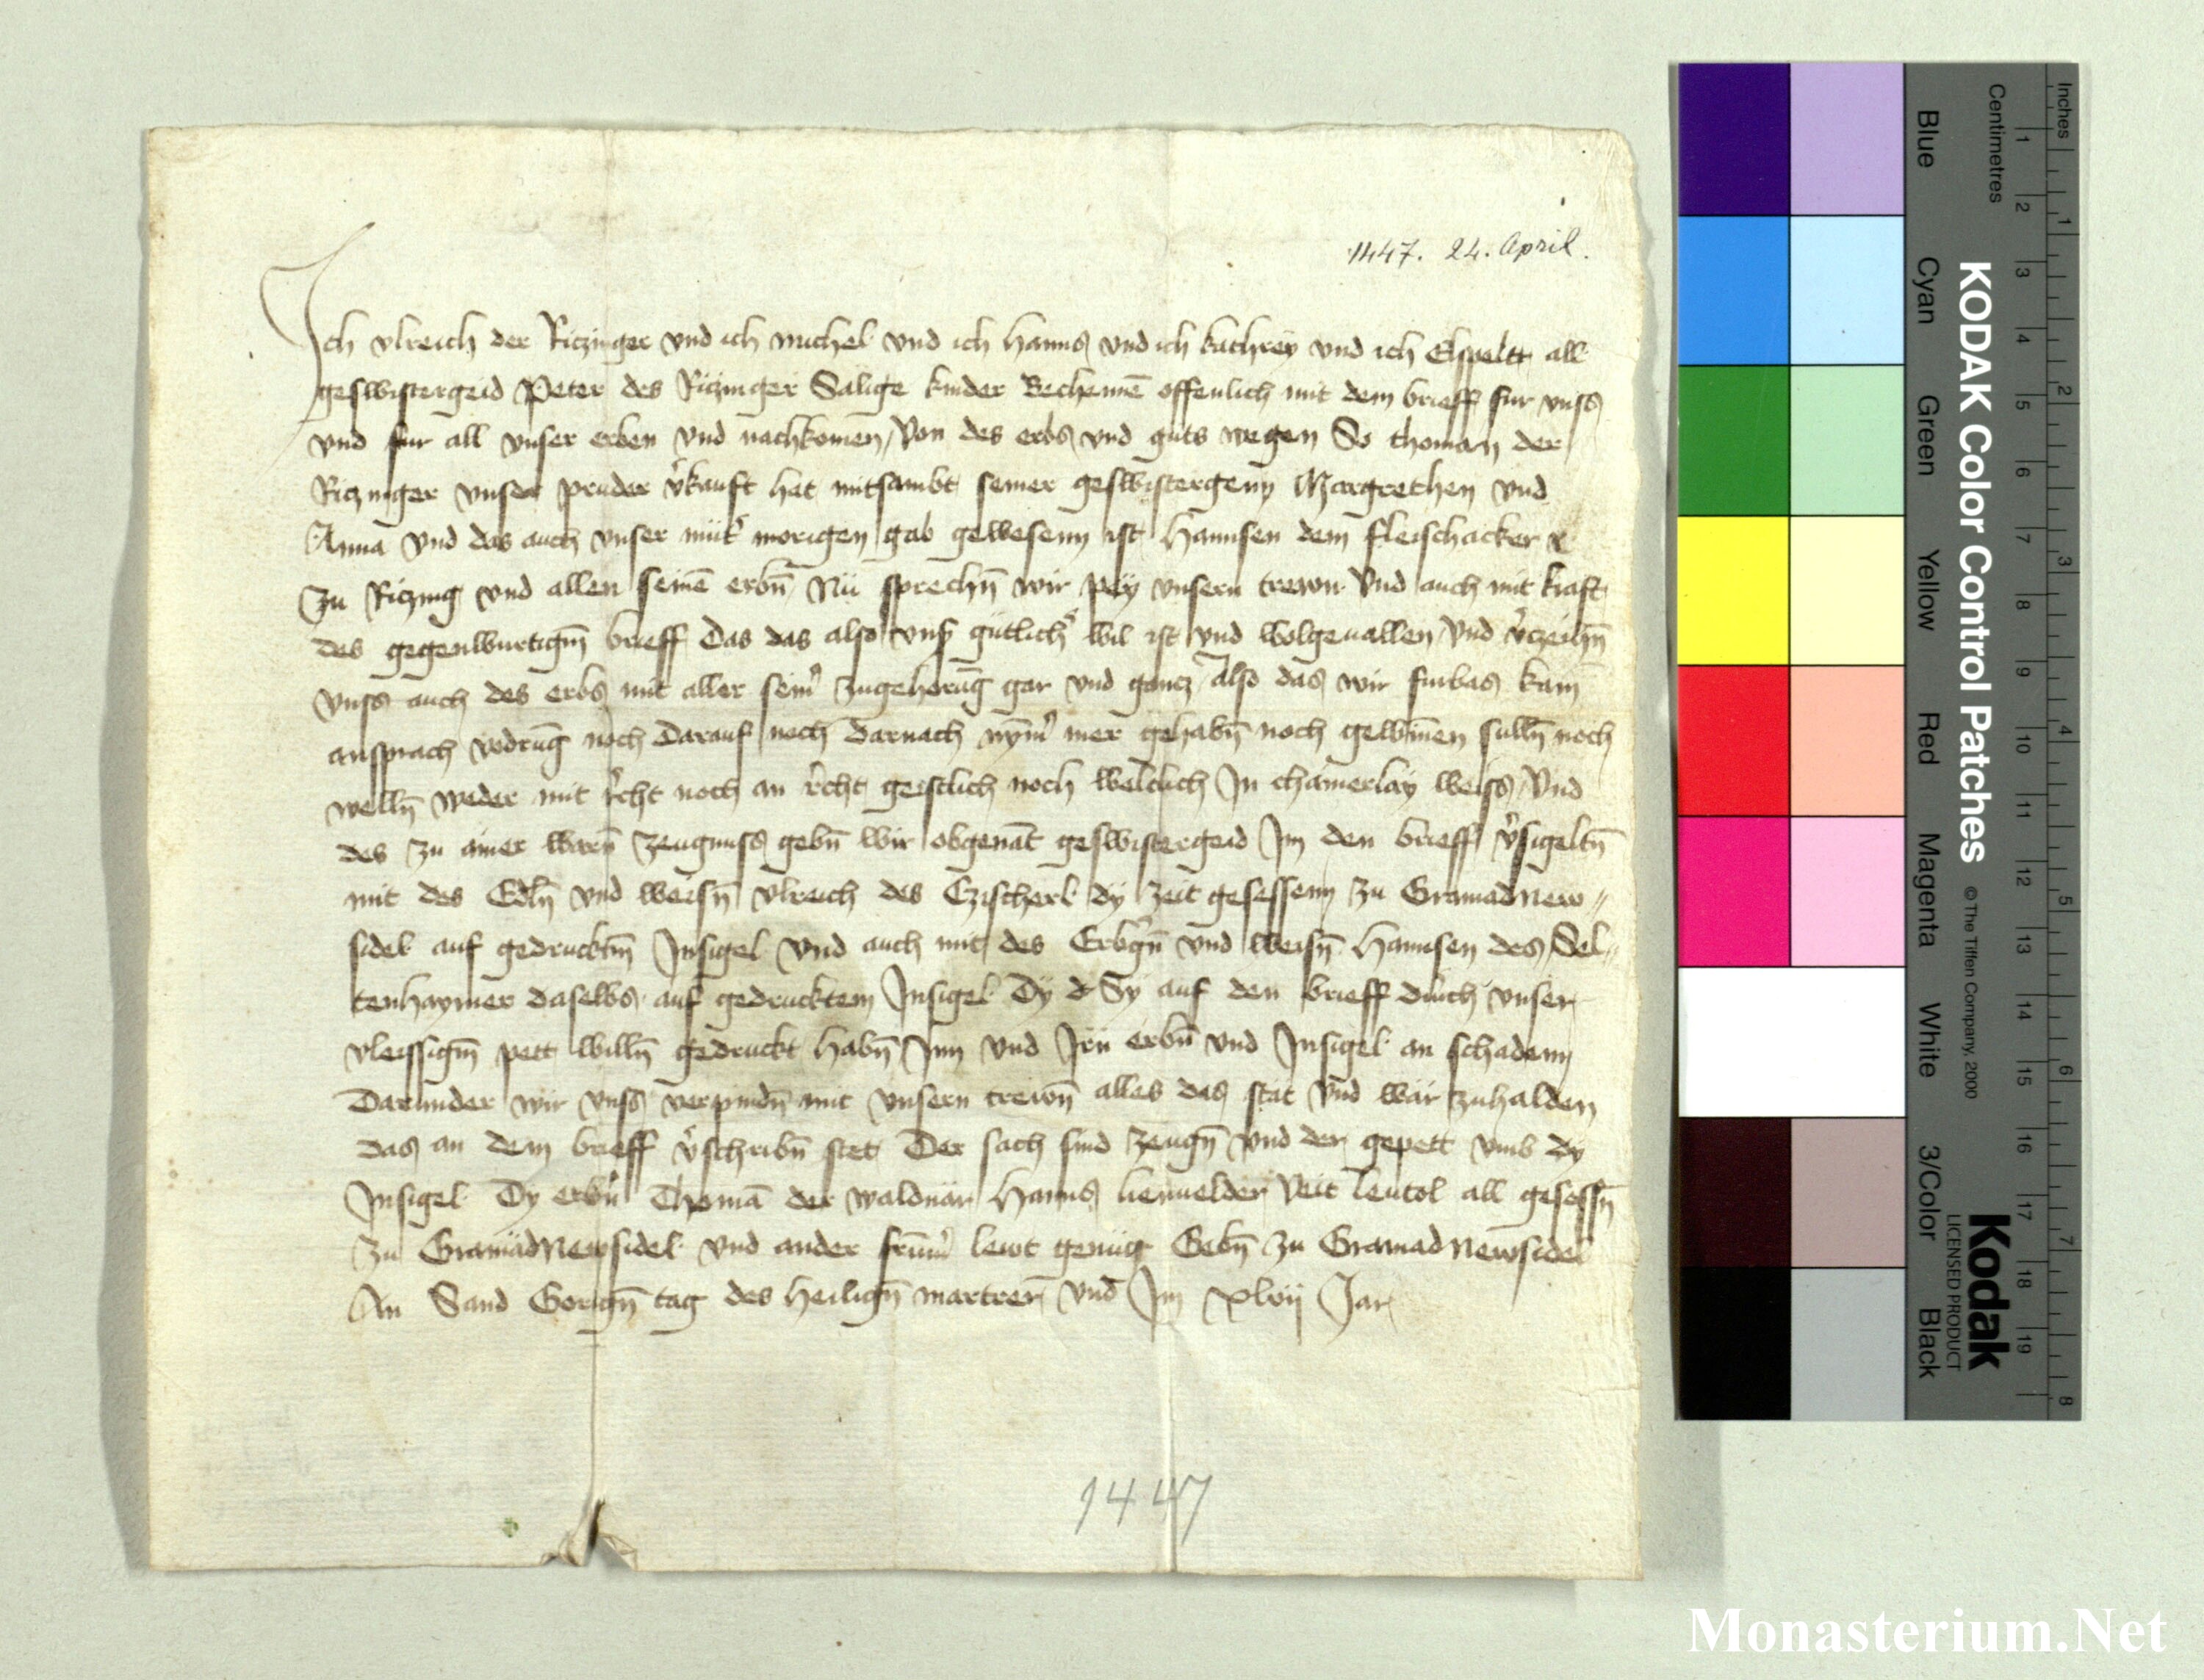 1447. 24. April.
Ich vlreich der Riczinger vnd ich michel vnd ich hanns vnd ich kathrey vnd ich Elspett all
geswistergeid Peter des Riczinger Salige kinder Bechennē offenlich mit dem brieff fur vnss
vnd fur all vnser erben vnd nachkomen Von des erbs vnd guts wegen So thoman der
Riczinger vnser pruder v̓kauft hat mitsambt seiner geswistergeny Margrethen vnd
Anna vnd das auch vnser mut̓ morigen gab gewesenn ist Hannsen dem fleischacker
zu Riczing vnd allen seinē erbn̄ Nu sprechn̄ wir pey vnsern trewn vnd auch mit kraft
des gegenwurtigm̄ brieff Das das also vnß gutlich̓ wil ist vnd wolgeuallen vnd v̓czeihn̄
vnss auch des erbs mit aller seinr̓ zugehorūg gar vnd gancz also das wir furbas kain
ansprach vodrūg noch darauf noch darnach nym̄̓ mer gehabn̄ noch gewīnen sulln̄ noch
welln̄ weder mit r̓cht noch an r̓cht geistlich noch weltlich In chainerlay weiss Vnd
des zu ainer warn̄ zeugnuss gebn̄ wir obgenāt geswistergeid Im den brieff v̓sigeltn̄
mit des Edln̄ vnd weisn̄ vlreich des Czischerl dy zeit gesessenn zu GramadNew〃
sidel auf gedrucktm̄ Insigel vnd auch mit des Erbgn̄ vnd weisn̄ Hannsen des Sel〃
tenhaymer daselbs auf gedrucktem Insigel Dy Sy auf den brieff durch vnser
vleissigm̄ pett willn̄ gedruckt habn̄ Inn vnd Irn erbn̄ vnd Insigel an schadenn
Darunder wir vnss verpindn̄ mit vnsern trewn̄ alles das stät vnd war zuhalden
das an dem brieff v̓schribn̄ stet Der sach sind zeugn̄ vnd der gepett vmb dy
Insigel Dy erbn̓ Thomā der waldnär Hanns lienuelder Veit leutol all gesessn̄
zu GramadNewsidel vnd ander frūm̓ lewt genug Gebn̄ zu GramadNewsidel
An Sand Gorign̄ tag des heilign̄ martrer vnd Im xlvij Jar
1447
Inches
Centimetres
1 2 3 4 5 6 7 8 9 10 11 12 13 14 15 16 17 18 19
1 2 3 4 5 6 7 8
KODAK Color Control Patches
© The Tiffen Company, 2000
Kodak
LICENSED PRODUCT
Blue
Cyan
Green
Yellow
Red
Magenta
White
3/Color
Black
Monasterium.Net